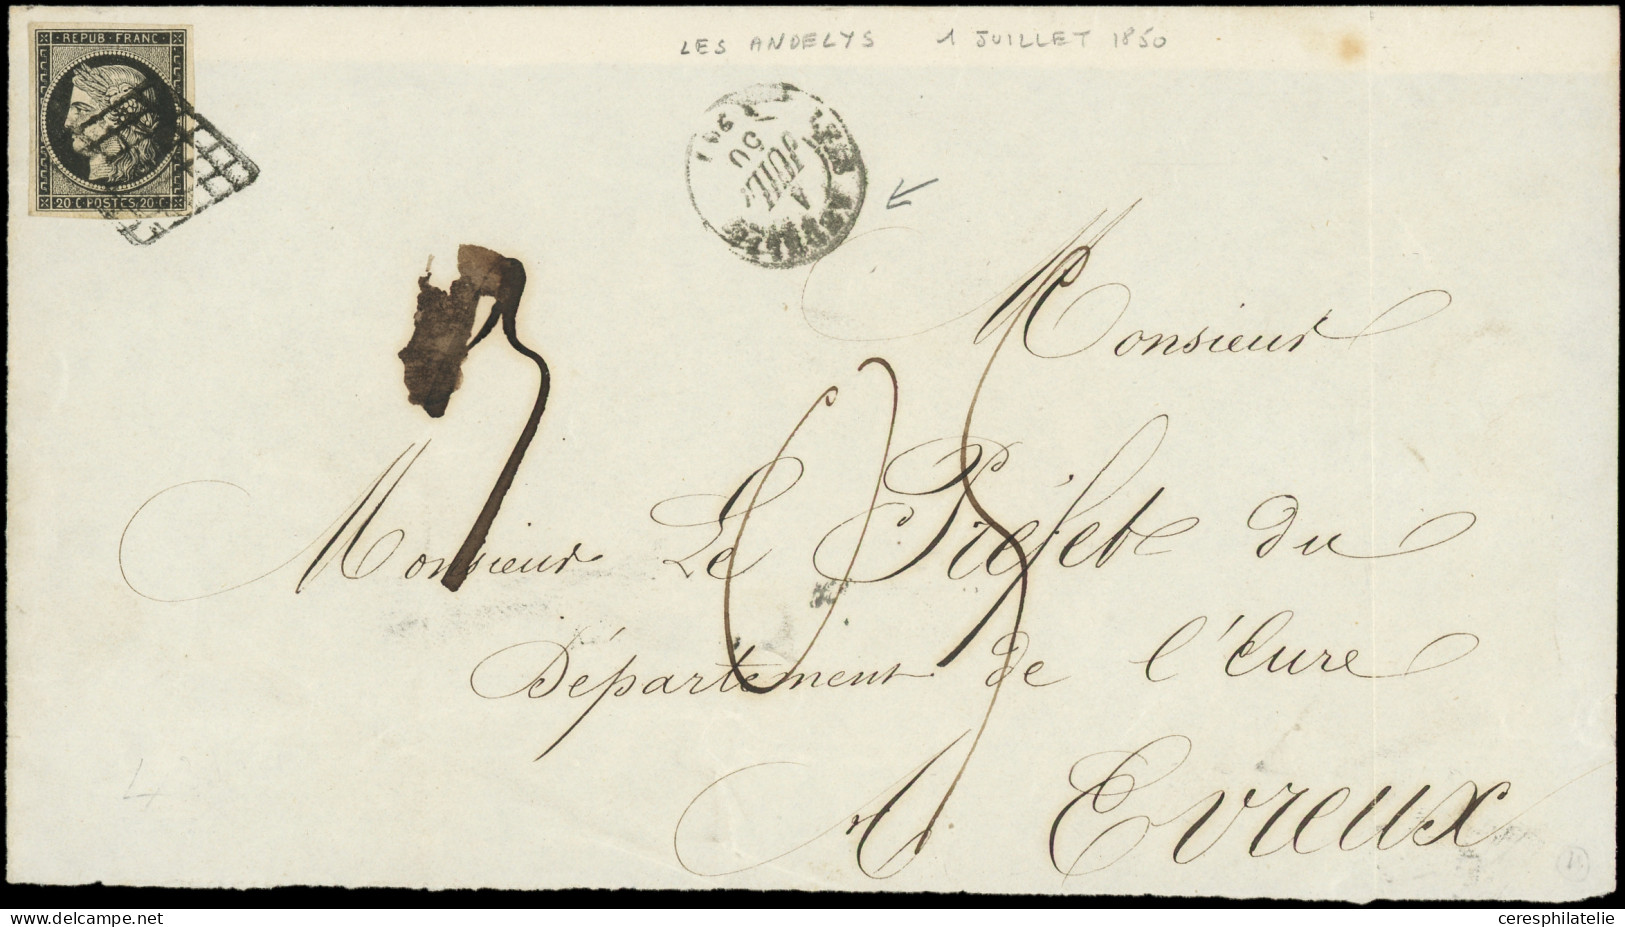 REPUB·FRANC·
20 C POSTES 20 C
LES ANDELYS 1 JUILLET 1850
LES ANDELYS
A
JUIL.
50
Monsieur
Monsieur Le Préfet du
Département de l'Eure
A Evreux
delcampe.net
ceresphilatelie